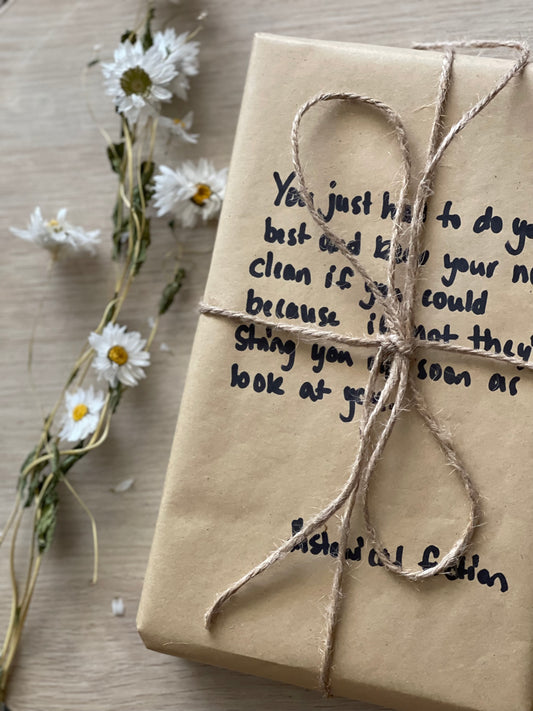 You just to do
best and your
clean if you could
because not
sting you soon as
look at
Historical fiction